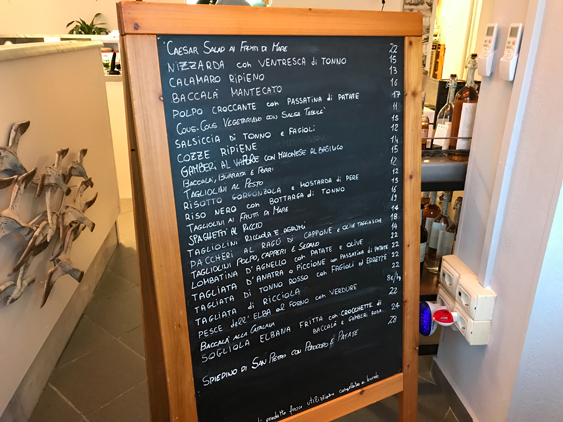 CAESAR SALAD AI FRUTTI DI MARE 22
NIZZARDA con VENTRESCA di TONNO 15
CALAMARO RIPIENO 13
BACCALÀ MANTECATO 16
POLPO CROCCANTE con PASSATINA di PATATE 17
COUS-COUS VEGETARIANO CON SALSA 11
SALSICCIA DI TONNO e FAGIOLI 15
COZZE RIPIENE 12
GAMBERI AL VAPORE CON MAIONESE AL BASILICO 14
BACCALÀ, BURRATA E PORRI 15
TAGLIOLINI AL PESTO 12
RISOTTO GORGONZOLA e MOSTARDA DI PERE 12
RISO NERO con BOTTARGA di TONNO 15
TAGLIOLINI AI FRUTTI DI MARE 16
SPAGHETTI AL RICCIO 19
TAGLIOLINI RICCIOLA e AGRUMI
PACCHERI AL RAGÙ DI CAPPONE e OLIVE TAGGIASCHE 18
TAGLIOLINI POLPO, CAPPERI E SEDANO 14
LOMBATINA D'AGNELLO con PATATE e OLIVE 22
TAGLIATA D'ANATRA o PICCIONE con PASSATINA di PATATE 22
TAGLIATA DI TONNO ROSSO con FAGIOLI ED ERBETTE 22
TAGLIATA di RICCIOLA 22
PESCE dell'ELBA al FORNO con VERDURE
BACCALÀ ALLA CATALANA 22
SOGLIOLA ELBANA FRITTA con CROCCHETTE di
BACCALÀ e GAMBERI ROSSI 24
SPIEDINO DI SAN PIETRO CON POMODORO E PATATE 28
prodotto fresco utilizziamo